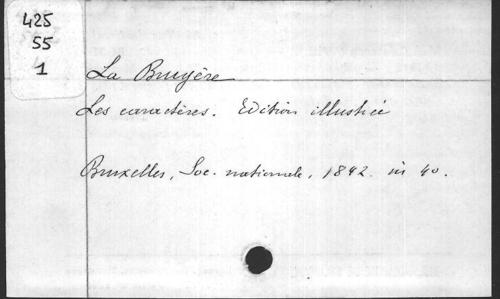 425
55
1
La Bruyère
Les caractères. Edition illustrée
Bruxelles, Soc. nationale, 1842. in 4o.